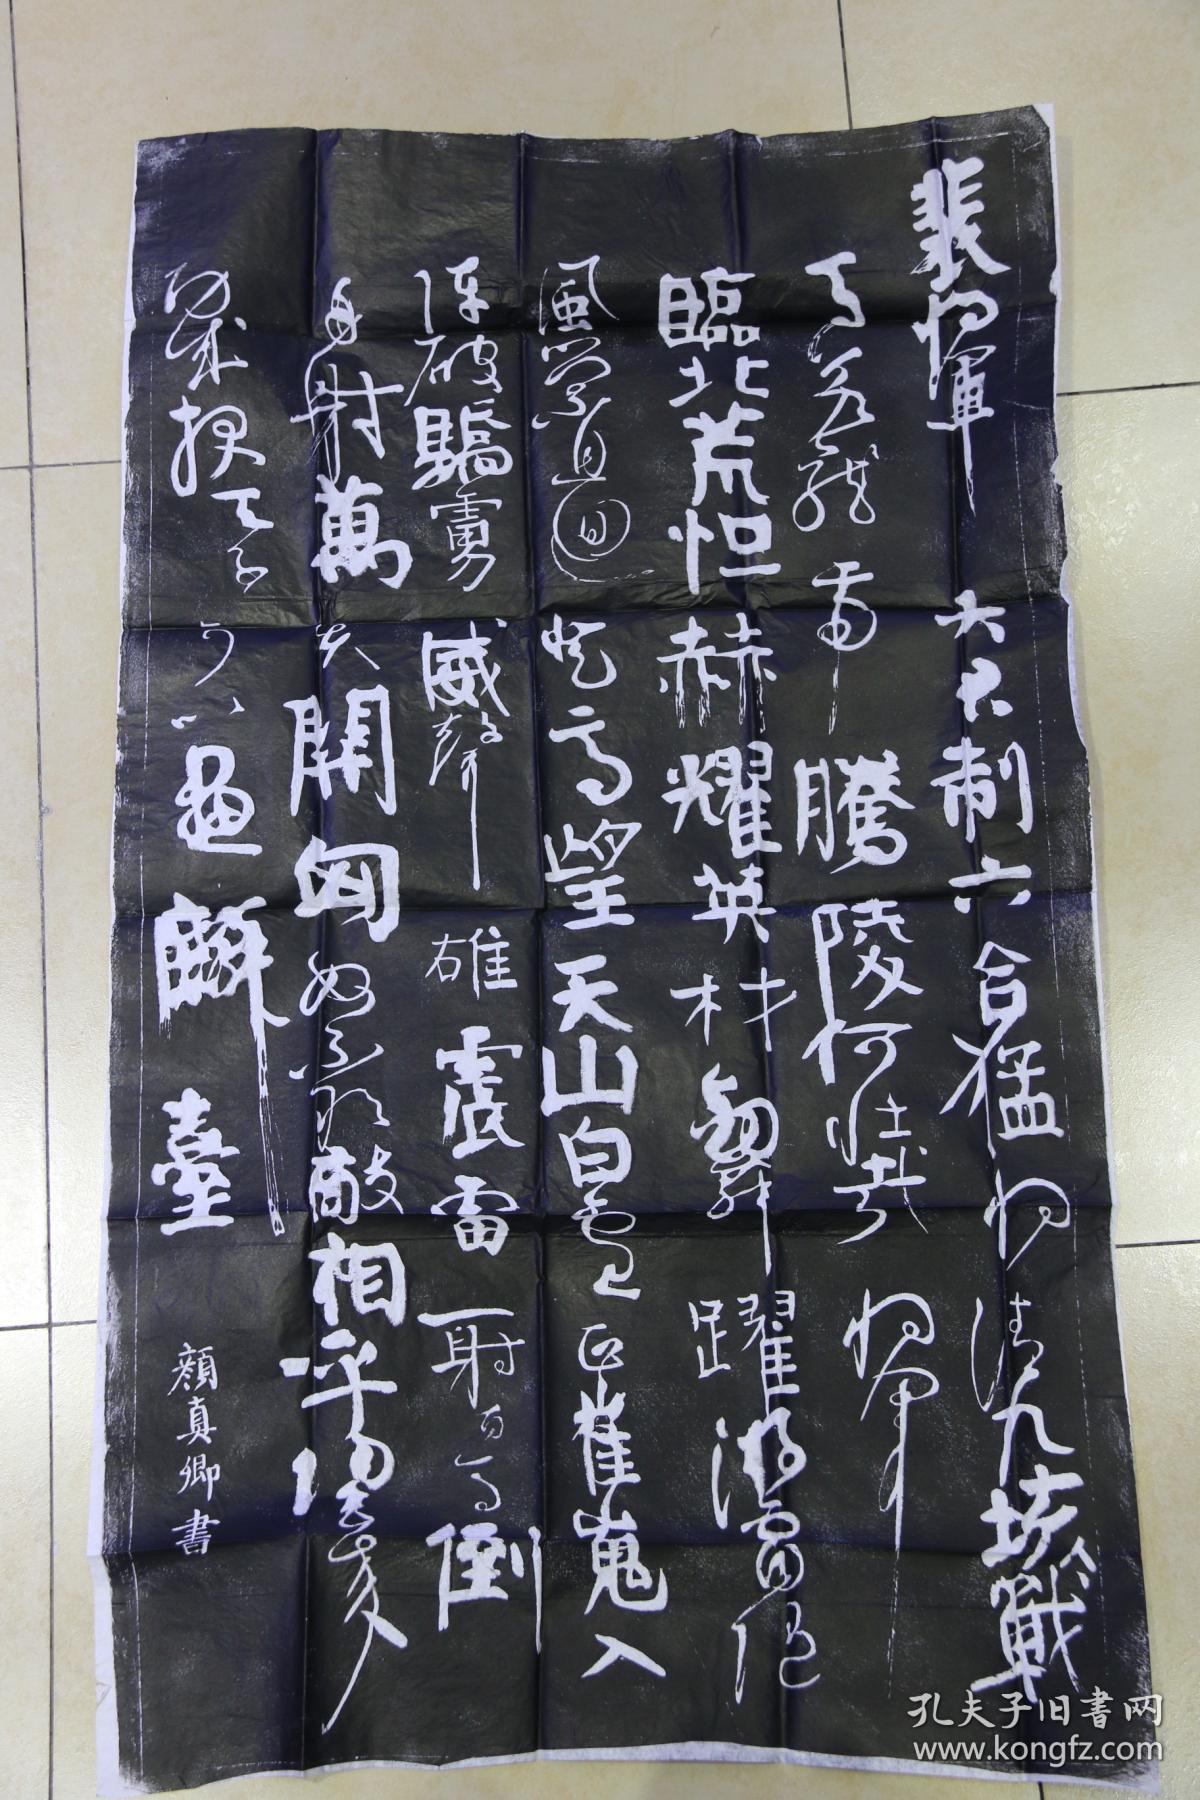 裴將軍
大君制六合猛將清九垓戰
馬若龍虎騰陵何壯哉將軍
臨北荒烜赫耀英材劍舞躍游電隨
風縈且迴登高望天山白雲正崔嵬入
陣破驕虜威聲雄震雷一射百馬倒
再射萬夫開匈奴不敢敵相呼歸去來
功成報天子可以畫麟臺
顏真卿書
孔夫子旧书网
www.kongfz.com